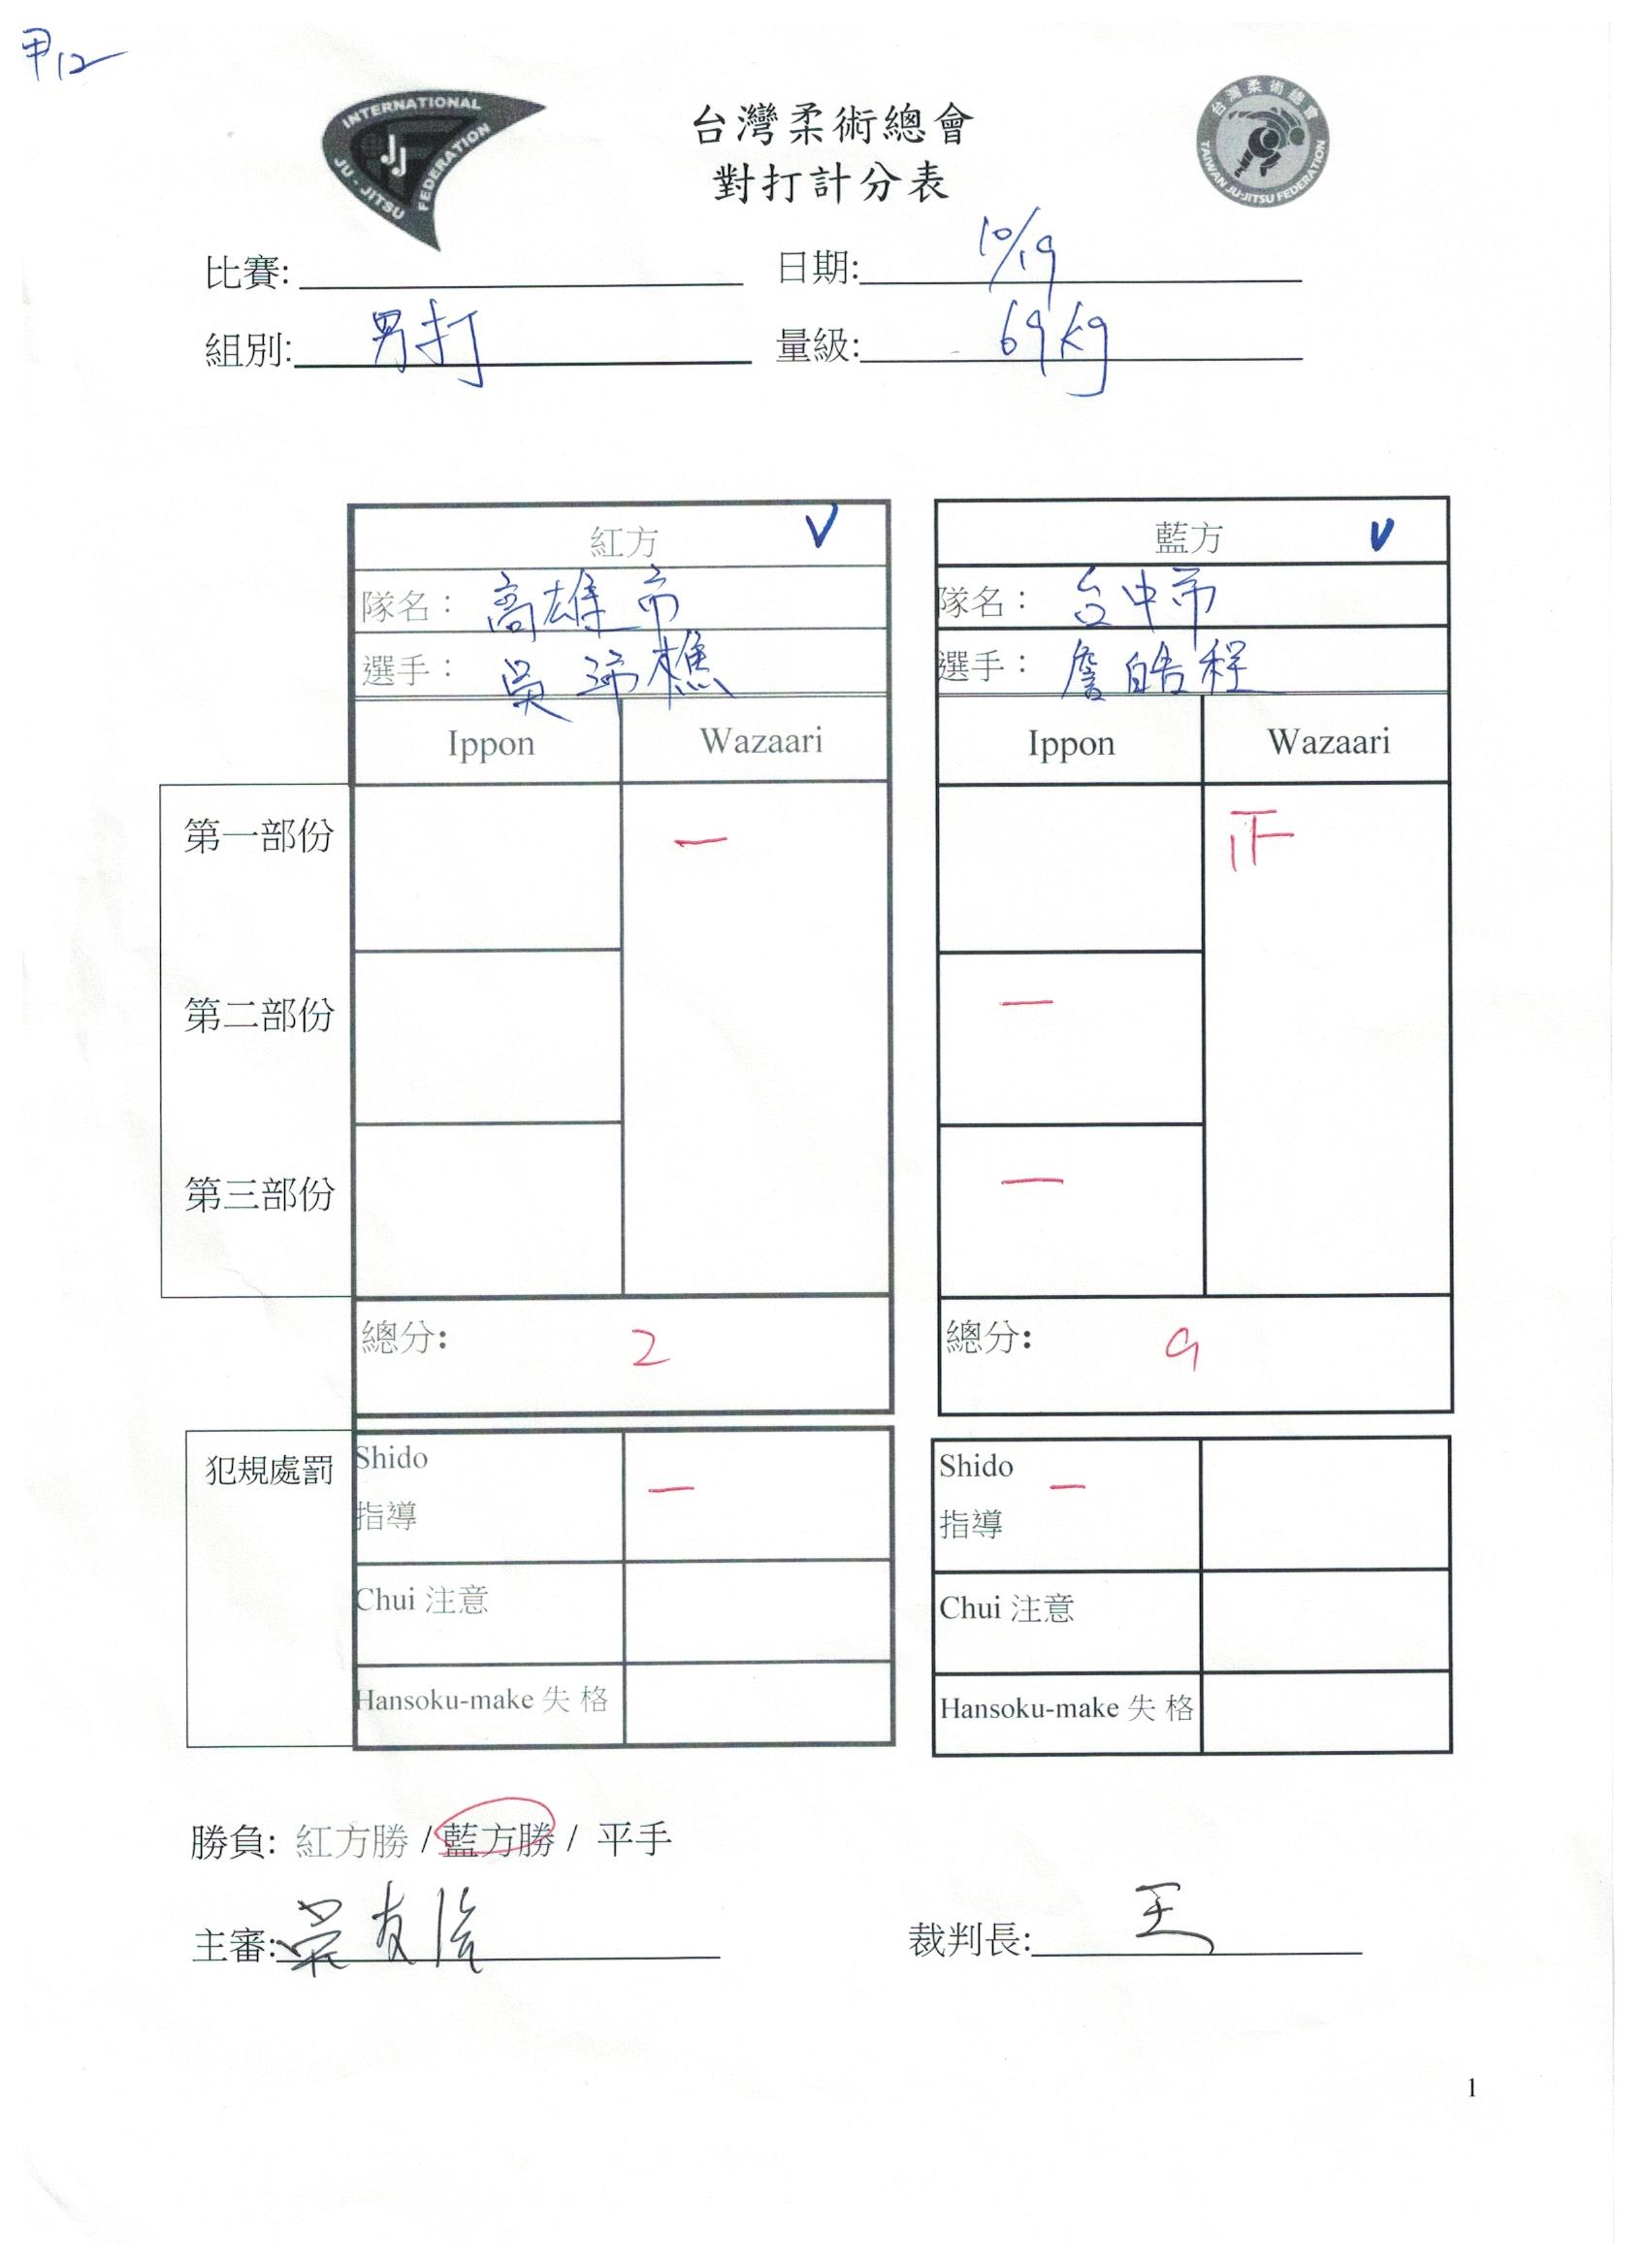 甲12
INTERNATIONAL
JJ
JU-JITSU FEDERATION
台灣柔術總會
TAIWAN JU-JITSU FEDERATION
台灣柔術總會
對打計分表
比賽: 日期: 10/19
組別: 男打 量級: 69kg
紅方 V 藍方 V
隊名: 高雄市 隊名: 台中市
選手: 吳沛樵 選手: 詹皓程
Ippon Wazaari Ippon Wazaari
第一部份 一
第二部份 一
第三部份 一
總分: 2 總分: 9
犯規處罰 Shido 一 Shido 一
指導 指導
Chui 注意 Chui 注意
Hansoku-make 失 格 Hansoku-make 失 格
勝負: 紅方勝 / 藍方勝 / 平手
主審: 裁判長: 王
1